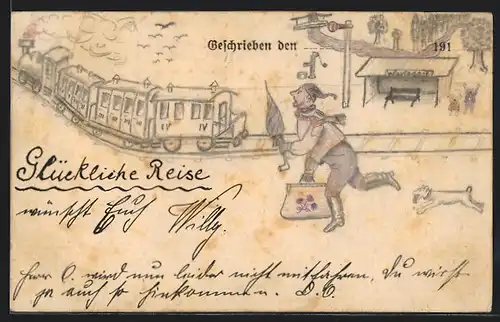 Geschrieben den 191
IV
Glückliche Reise
wünscht Euch Willy.
Herr O. wird nun leider nicht mitfahren, Du wirst
ja auch so hinkommen. D. O.